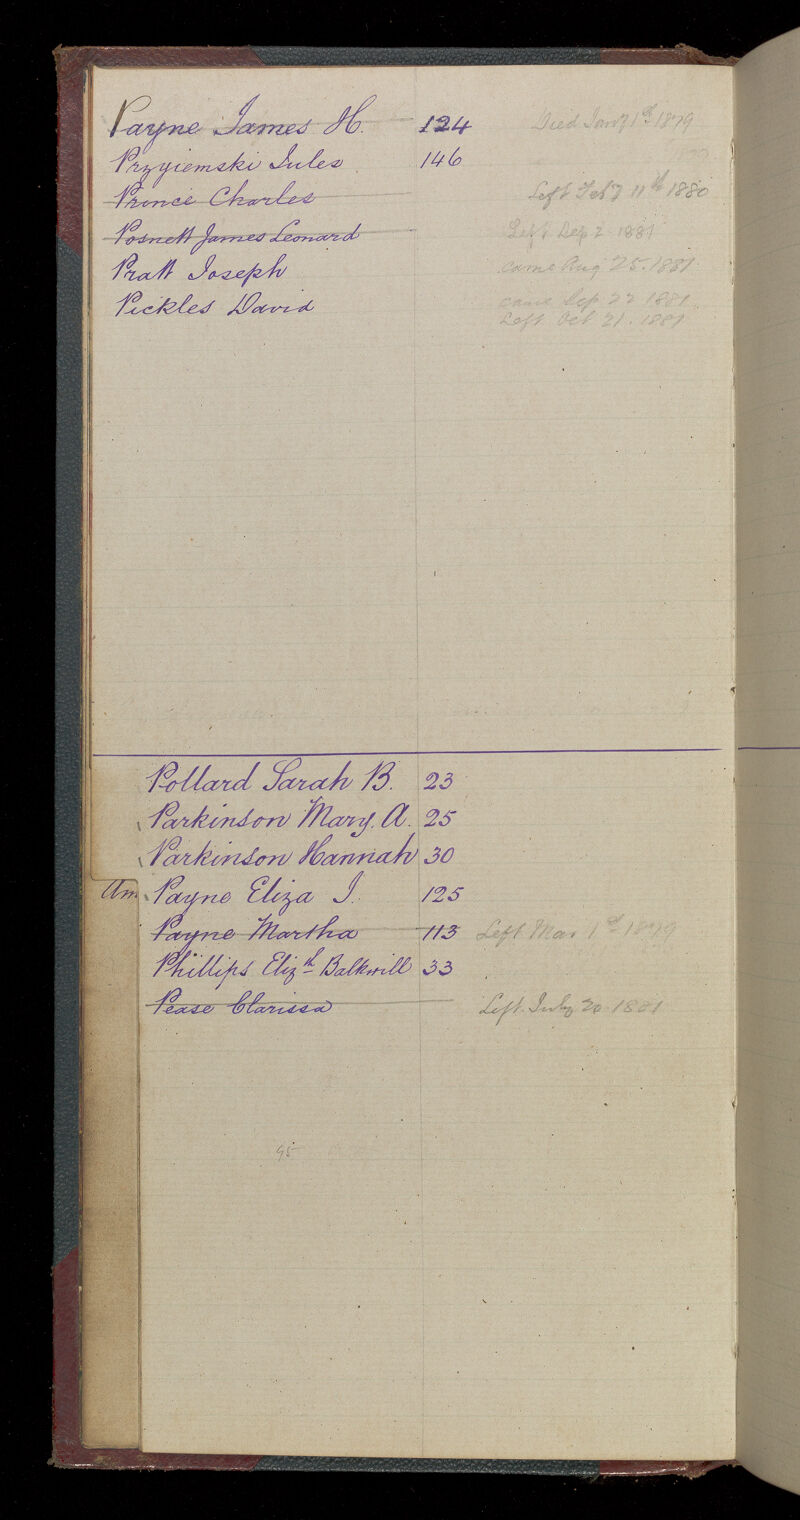 Payne James H. 124 Died Jany 1st 1879
Przyiemski Jules 146
Prince Charles Left Feby 11th 1880
Posnett James Leonard Left Sep 2 1881
Pratt Joseph came Aug 25. 1881
Pickles David came Sep 22 1881
Left Oct 21. 1881
Pollard Sarah B. 23
Parkinson Mary. A. 25
Parkinson Hannah 30
Am Payne Eliza J. 125
Payne Martha 113 Left Mar 1st 1879
Phillips Elizth Balkwill 33
Pease Clarissa Left July 20 1881
95